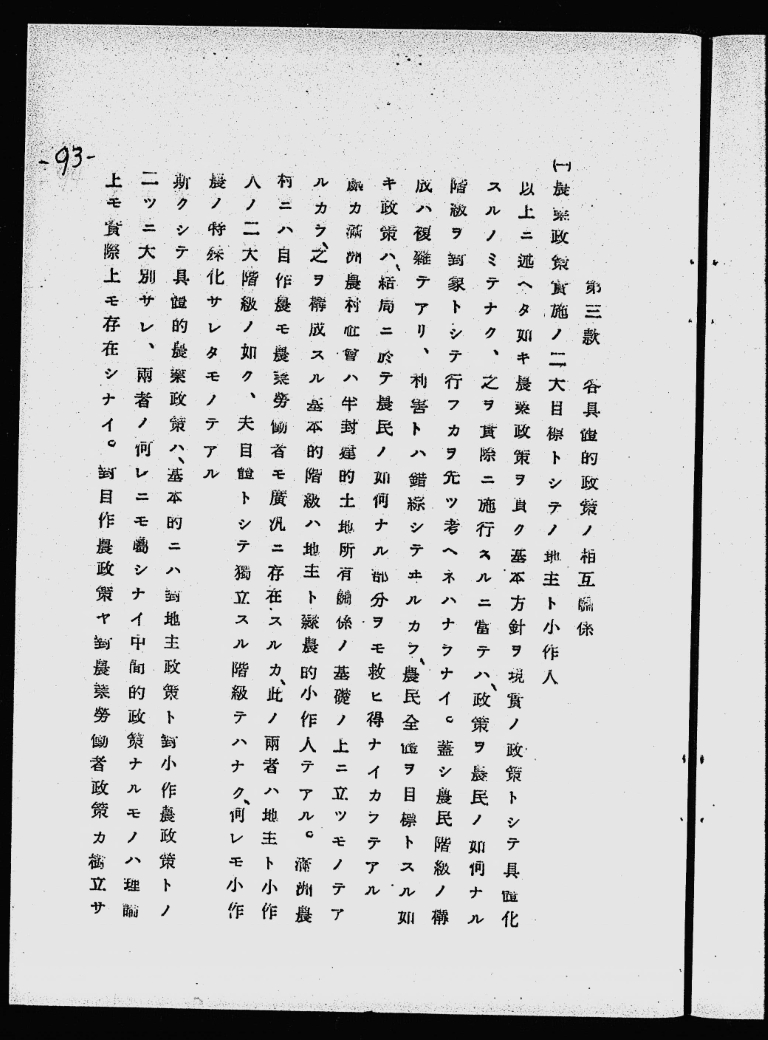 -93-
第三款　各具體的政策ノ相互關係
㈠農業政策實施ノ二大目標トシテノ地主ト小作人
以上ニ述ヘタ如キ農業政策ヲ貫ク基本方針ヲ現實ノ政策トシテ具體化
スルノミテナク、之ヲ實際ニ施行スルニ當テハ、政策ヲ農民ノ如何ナル
階級ヲ對象トシテ行フカヲ先ツ考ヘネハナラナイ。蓋シ農民階級ノ構
成ハ複雜テアリ、利害トハ錯綜シテヰルカラ、農民全體ヲ目標トスル如
キ政策ハ、結局ニ於テ農民ノ如何ナル部分ヲモ救ヒ得ナイカラテアル
處カ滿洲農村社會ハ半封建的土地所有關係ノ基礎ノ上ニ立ツモノテア
ルカラ、之ヲ構成スル基本的階級ハ地主ト隸農的小作人テアル。滿洲農
村ニハ自作農モ農業勞働者モ廣汎ニ存在スルカ、此ノ兩者ハ地主ト小作
人ノ二大階級ノ如ク、夫自體トシテ獨立スル階級テハナク、何レモ小作
農ノ特殊化サレタモノテアル
斯クシテ具體的農業政策ハ、基本的ニハ對地主政策ト對小作農政策トノ
二ツニ大別サレ、兩者ノ何レニモ屬シナイ中間的政策ナルモノハ理論
上モ實際上モ存在シナイ。對自作農政策ヤ對農業勞働者政策カ獨立サ